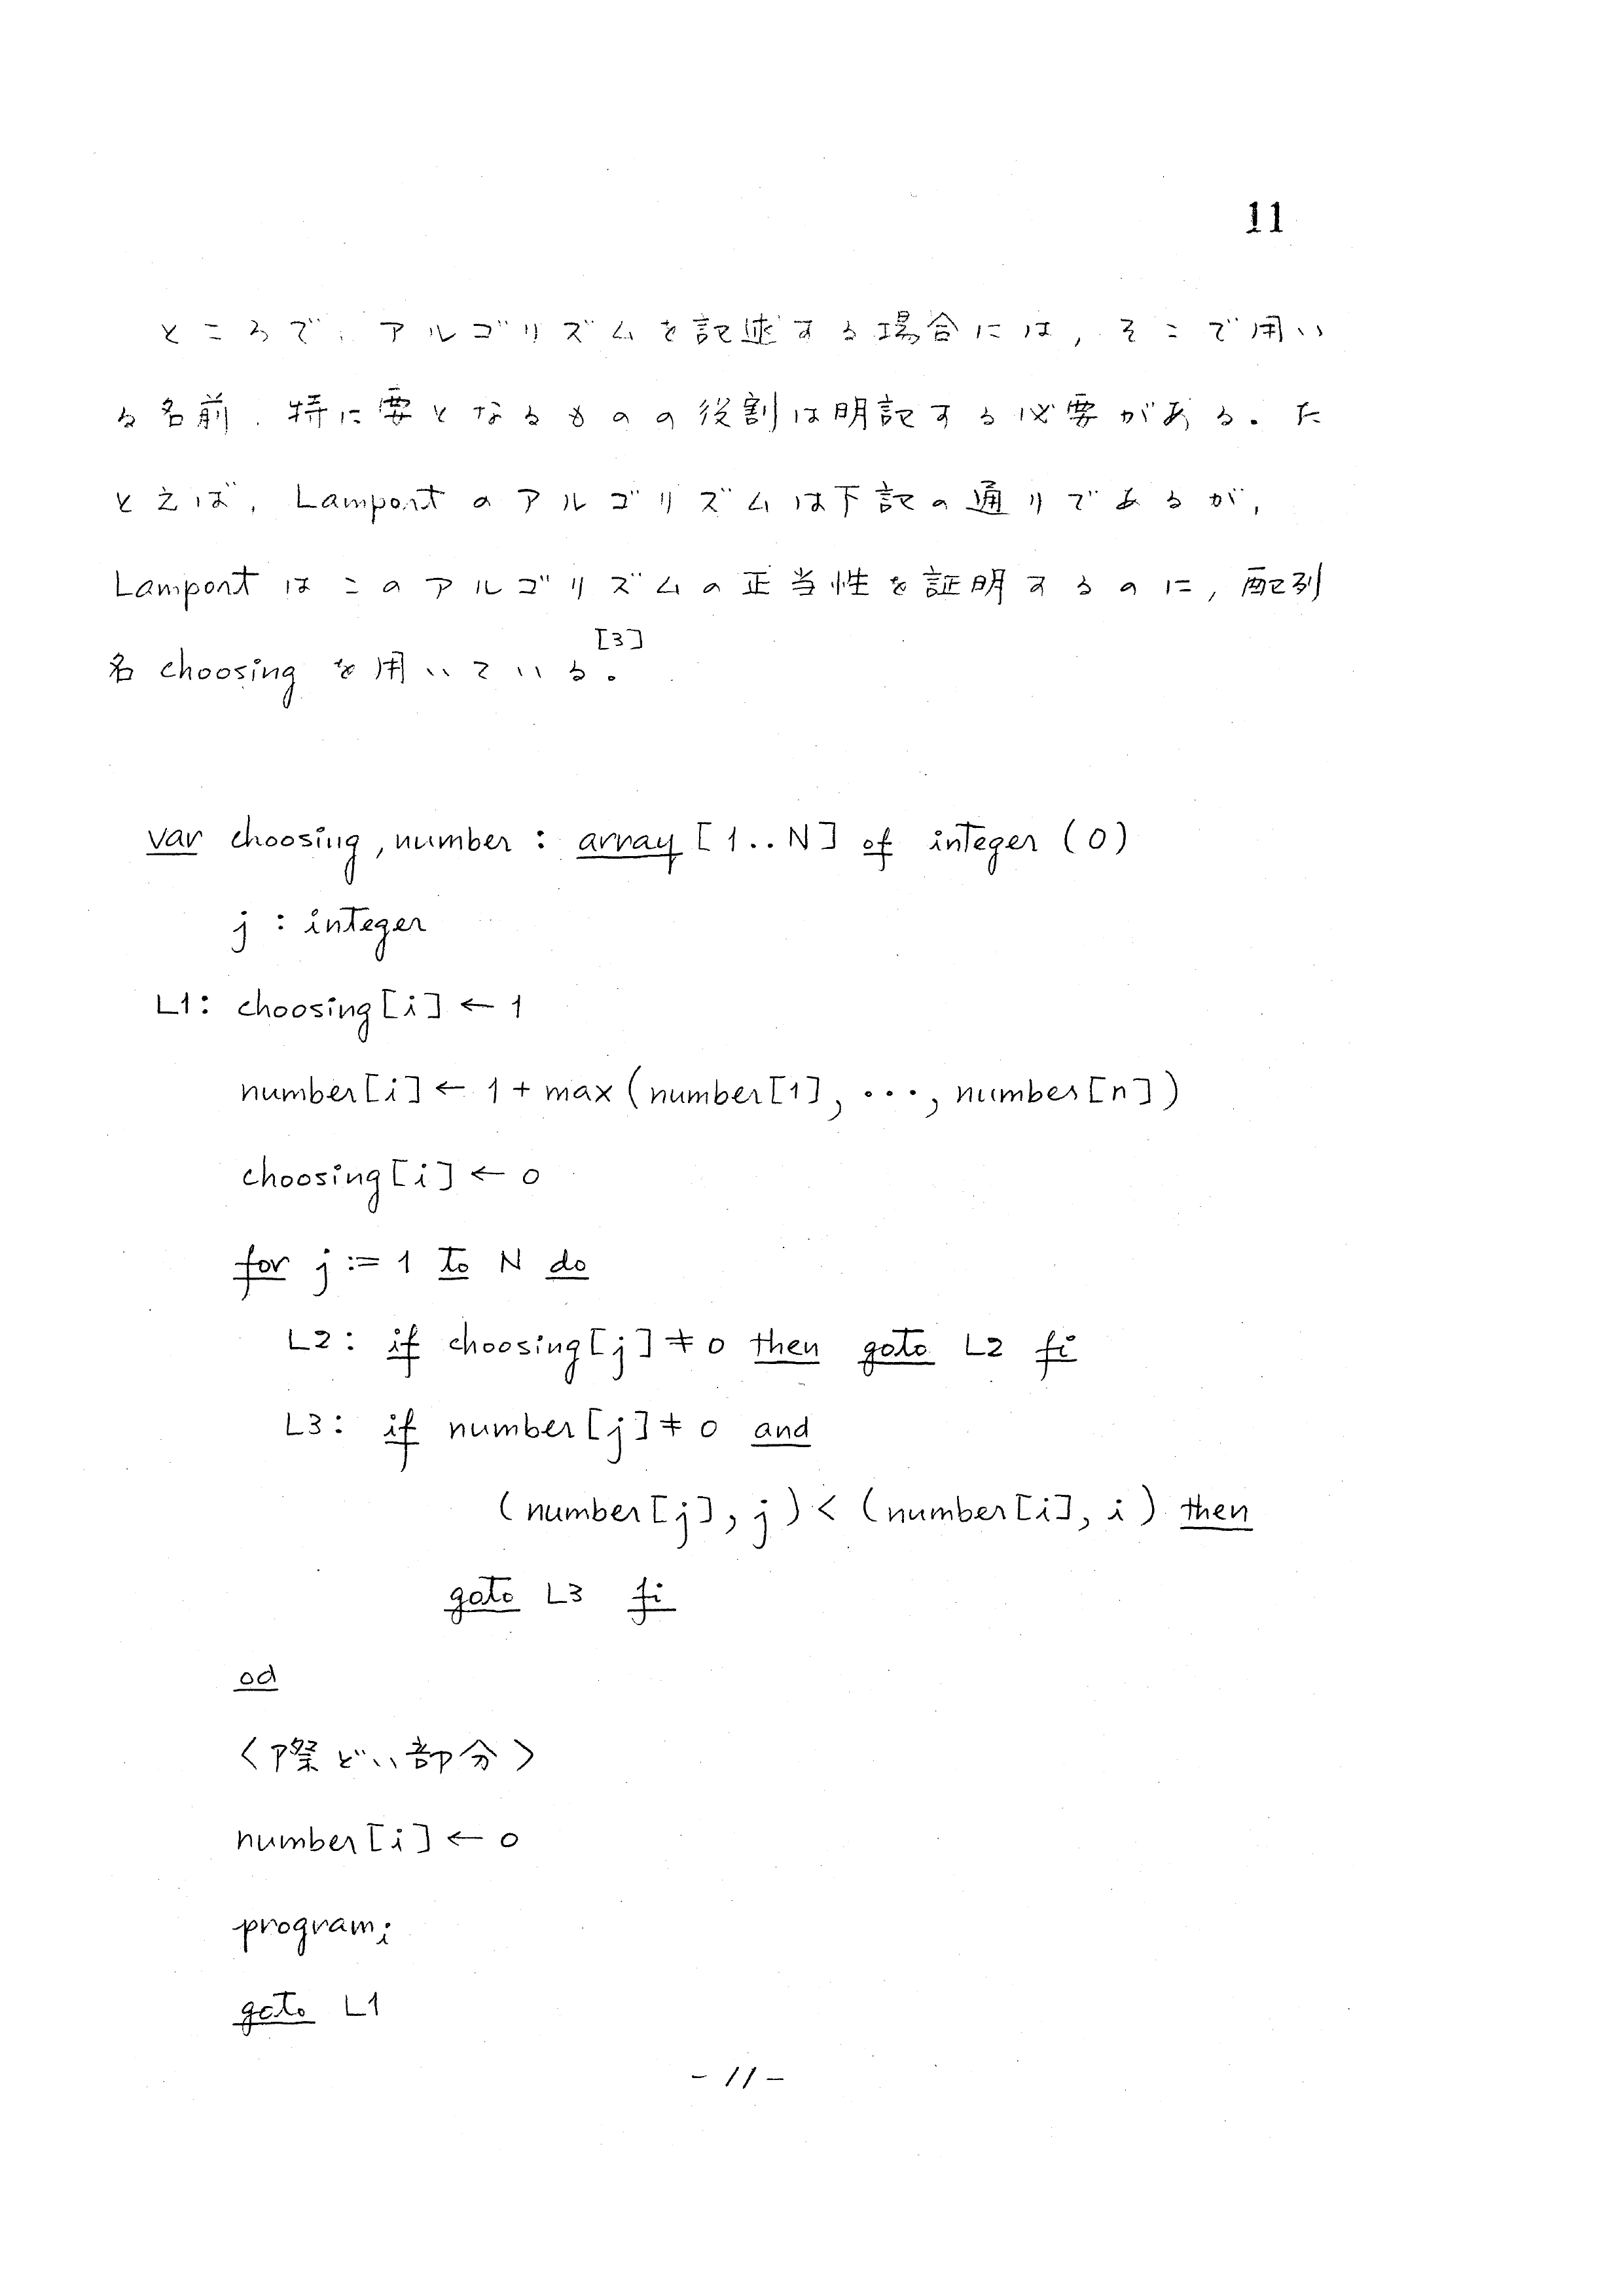 11
ところで，アルゴリズムを記述する場合には，そこで用い
る名前，特に要となるものの役割は明記する必要がある．た
とえば，Lamportのアルゴリズムは下記の通りであるが，
Lamportはこのアルゴリズムの正当性を証明するのに，配列
[3]
名 choosing を用いている。
var choosing, number : array [1..N] of integer (0)
j : integer
L1: choosing[i] ← 1
number[i] ← 1 + max (number[1], ..., number[n])
choosing[i] ← 0
for j := 1 to N do
L2: if choosing[j] ≠ 0 then goto L2 fi
L3: if number[j] ≠ 0 and
(number[j], j) < (number[i], i) then
goto L3 fi
od
〈際どい部分〉
number[i] ← 0
programᵢ
goto L1
- 11 -